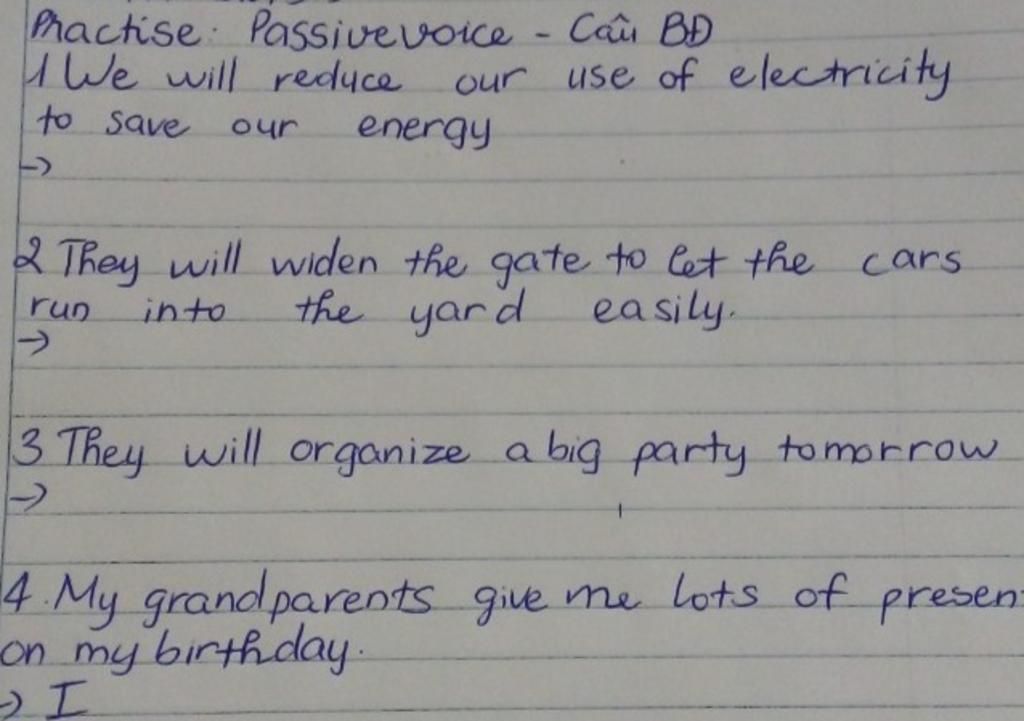 Practise: Passive voice - Câu BĐ
1 We will reduce our use of electricity
to save our energy
->
2 They will widen the gate to let the cars
run into the yard easily.
->
3 They will organize a big party tomorrow
->
4. My grandparents give me lots of presen
on my birthday.
-> I